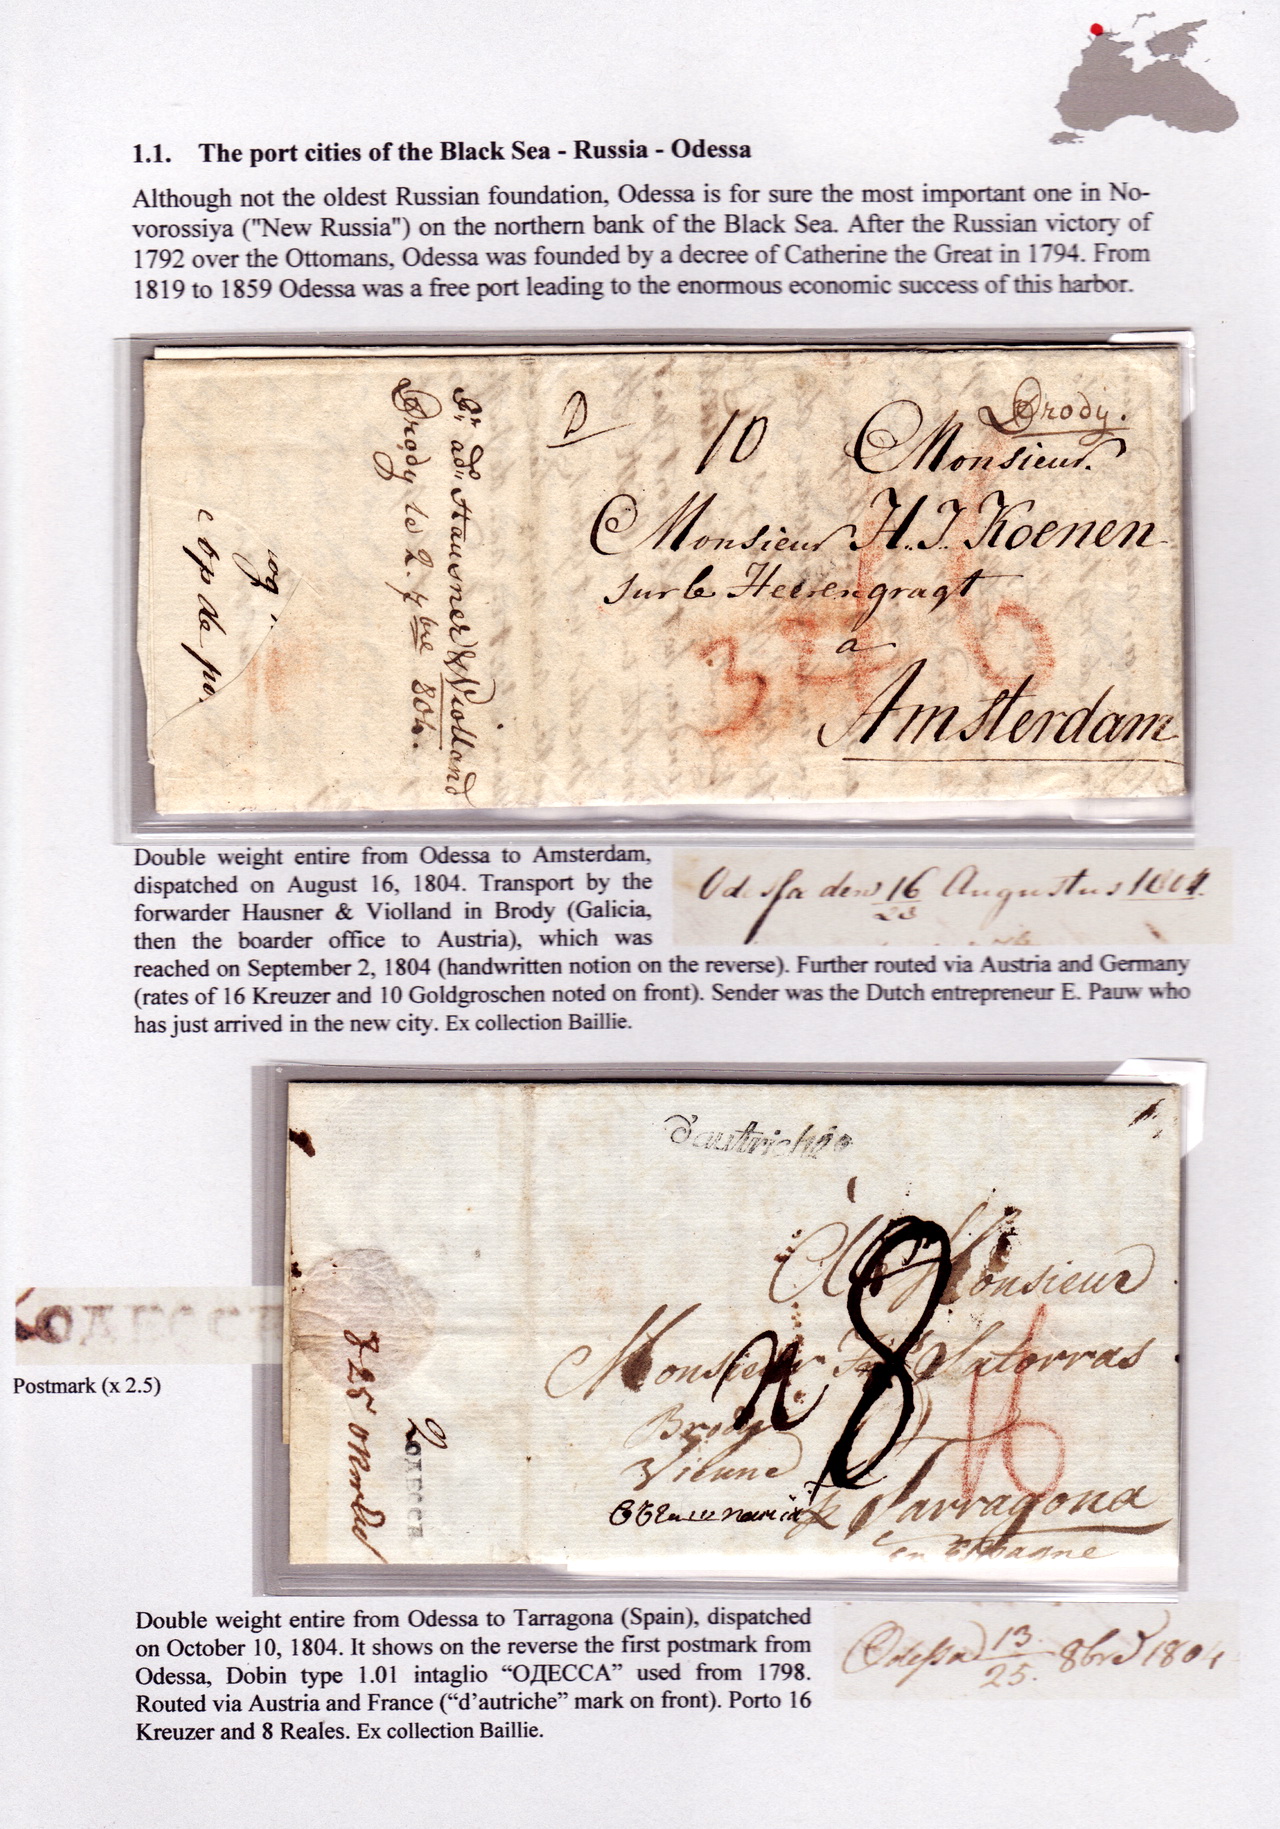 1.1. The port cities of the Black Sea - Russia - Odessa
Although not the oldest Russian foundation, Odessa is for sure the most important one in No-
vorossiya ("New Russia") on the northern bank of the Black Sea. After the Russian victory of
1792 over the Ottomans, Odessa was founded by a decree of Catherine the Great in 1794. From
1819 to 1859 Odessa was a free port leading to the enormous economic success of this harbor.
Brody.
10
Monsieur
Monsieur H. J. Koenen
sur le Heerengragt
a
Amsterdam
Hausner & Violland
Brody le 2. 7bre 804.
op de po.
Double weight entire from Odessa to Amsterdam,
dispatched on August 16, 1804. Transport by the
forwarder Hausner & Violland in Brody (Galicia,
then the boarder office to Austria), which was
reached on September 2, 1804 (handwritten notion on the reverse). Further routed via Austria and Germany
(rates of 16 Kreuzer and 10 Goldgroschen noted on front). Sender was the Dutch entrepreneur E. Pauw who
has just arrived in the new city. Ex collection Baillie.
Odessa den 16/28 Augustus 1804.
d'autriche
A Monsieur
Monsieur Latorras
8
16
Brody
Vienne
Tarragona
en Espagne
ОДЕССА
Postmark (x 2.5)
Double weight entire from Odessa to Tarragona (Spain), dispatched
on October 10, 1804. It shows on the reverse the first postmark from
Odessa, Dobin type 1.01 intaglio “ОДЕССА” used from 1798.
Routed via Austria and France (“d’autriche” mark on front). Porto 16
Kreuzer and 8 Reales. Ex collection Baillie.
Odessa 13/25. 8bre 1804